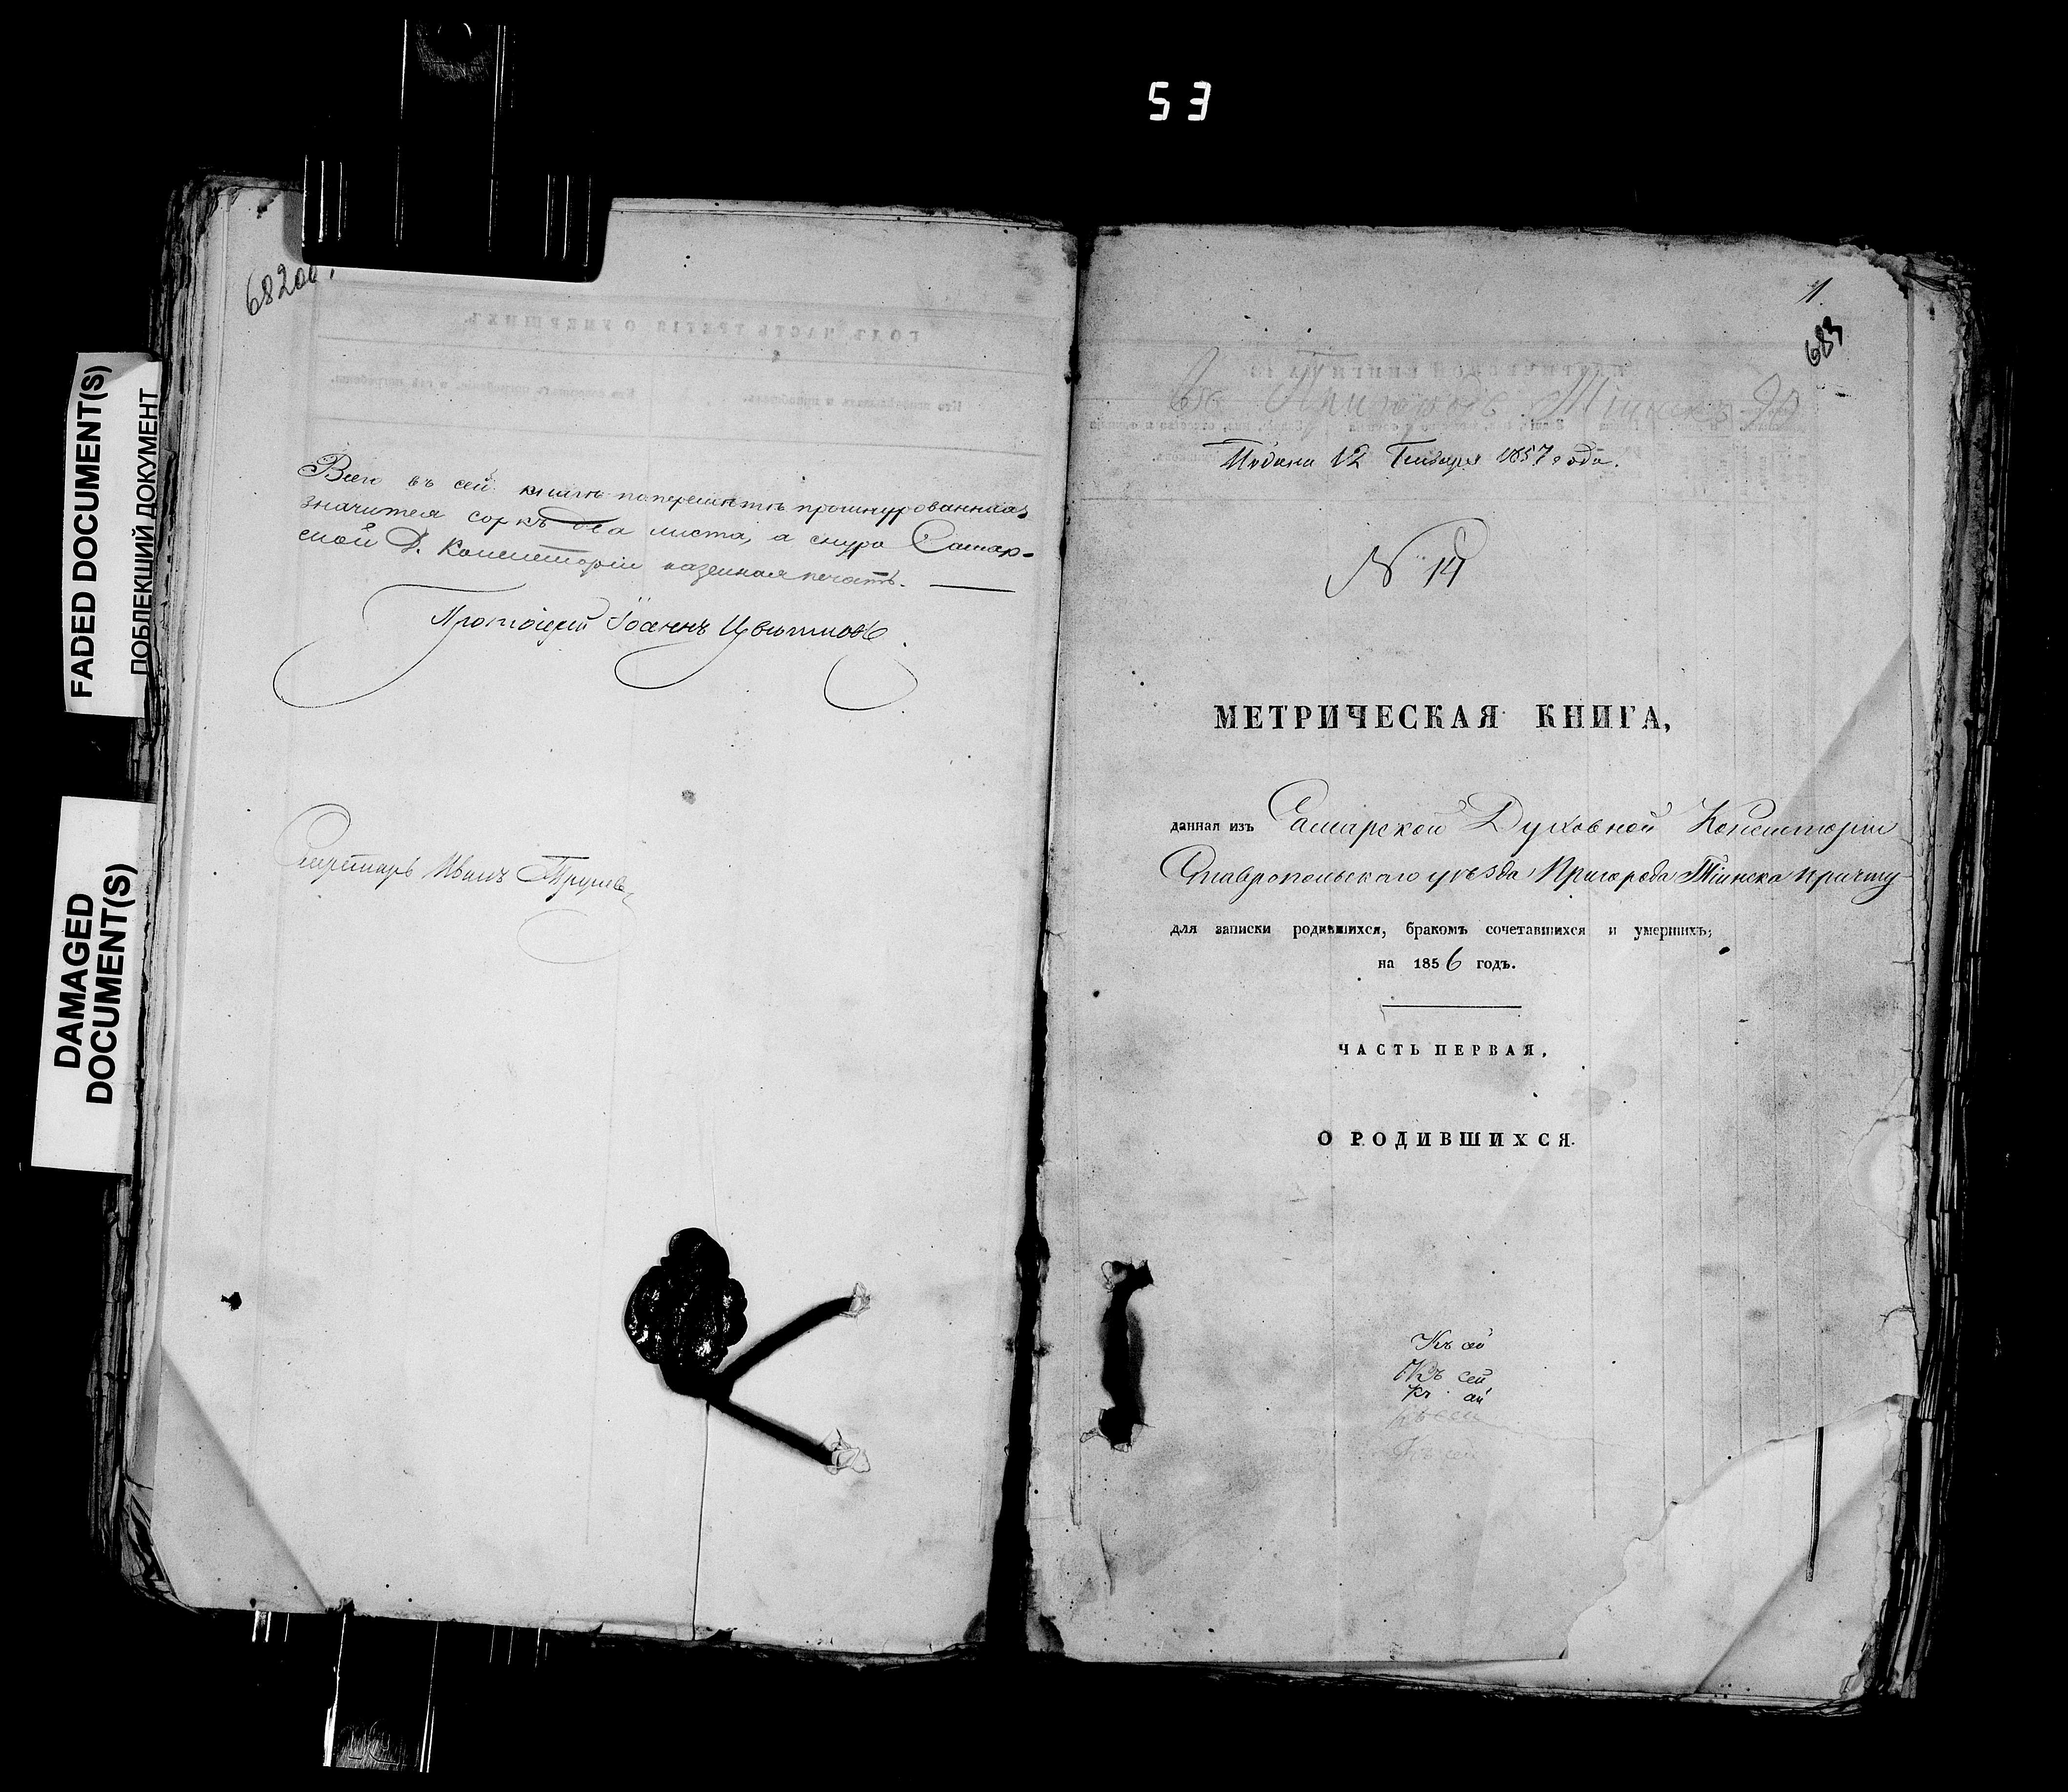 53
FADED DOCUMENT(S)
ПОБЛЕКШИЙ ДОКУМЕНТ
DAMAGED
DOCUMENT(S)
682об.
Всего въ сей книгѣ прошнурованныхъ
значится сорокъ два листа, а снура Самар-
ской Д. Консисторіи казенная печать.
Протоіерей Іоаннъ Цвѣтковъ.
Секретарь Иванъ
1.
683
Въ Пригородѣ Тіинскѣ
Подана 12 Генваря 1857 года.
N 14
МЕТРИЧЕСКАЯ КНИГА,
данная изъ Самарской Духовной Консисторіи
Ставропольскаго уѣзда Пригорода Тіинска причту
для записки родившихся, бракомъ сочетавшихся и умершихъ;
на 1856 годъ.
ЧАСТЬ ПЕРВАЯ,
О РОДИВШИХСЯ.
Къ сей
Къ сей
Къ сей
Къ сей
Къ сей